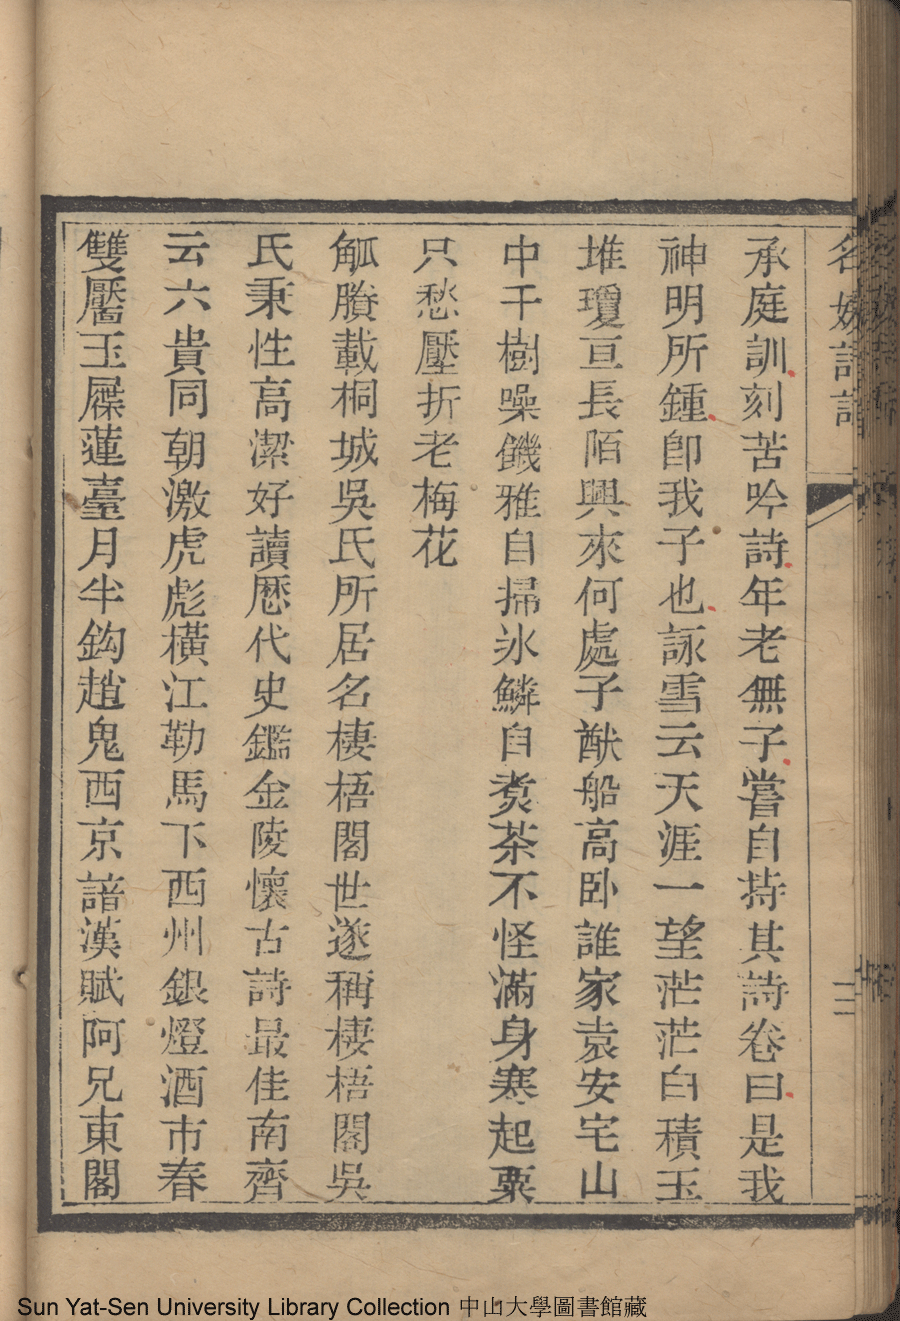 名媛詩話
三
承庭訓刻苦吟詩年老無子嘗自持其詩卷曰是我
神明所鍾卽我子也詠雪云天涯一望茫茫白積玉
堆瓊亘長陌興來何處子猷船高卧誰家袁安宅山
中千樹噪饑雅自掃氷鱗自煑茶不怪滿身寒起粟
只愁壓折老梅花
觚賸載桐城吳氏所居名棲梧閣世遂稱棲梧閣吳
氏秉性高潔好讀厯代史鑑金陵懷古詩最佳南齊
云六貴同朝激虎彪橫江勒馬下西州銀燈酒市春
雙靨玉屧蓮臺月半鈎趙鬼西京諳漢賦阿兄東閣
Sun Yat-Sen University Library Collection 中山大學圖書館藏